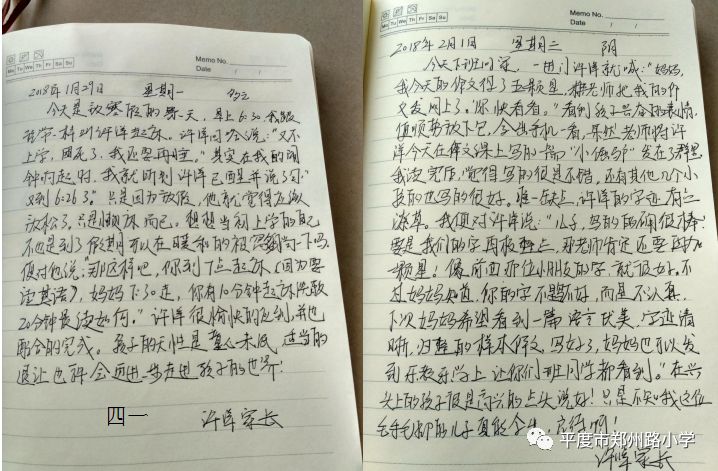 Memo No.
Mo Tu We Th Fr Sa Su
Date / /
2018年1月29日 星期一 多云
今天是放寒假的第一天,早上6:30我跟
往常一样叫许洋起床。许洋闷声说:"又不
上学,困死了,我还要再睡。"其实在我的闹
钟响起时,我就听到许洋已醒并说了句"
又到6:26了。"只是因为放假,他就觉得应该
放松了,只是赖床而已。想想当初上学的自己
不也是到了假期可以在暖和的被窝
便对他说:"那这样吧,你到7点起床(因为要
读英语),妈妈7:30走,你有10分钟起床洗漱
20分钟晨读如何。"许洋很愉快的答应,并也
配合的完成。孩子的天性是 适当的
退让也许会更进一步走进孩子的世界!
四一
许洋家长
Memo No.
Mo Tu We Th Fr Sa Su
Date / /
2018年2月1日 星期三 阴
今天下班回家,一进门许洋就喊:"妈妈,
我今天的作文得了五颗星,老师把我的作
文发网上了。你快看看。"看到孩子兴奋的表情,
便顺势放下包,拿出手机一看,果然老师将许
洋今天在作文课上写的一篇"小 "发在了群里,
我读完后,觉得写的很是不错,还有其他几个小
朋的也写的很好。唯一缺点,许洋的字迹有点
潦草。我便对许洋说:"儿子,写的的确很棒!
要是我们的字再板正点,那老师肯定还要再加
颗星!像前面那位小朋友的字,就很好。不
过妈妈知道,你的字不是不好,而是不认真,
下次妈妈希望看到一篇语言优美,字迹清
晰,归整的样本作文,写好了,妈妈也可以发
到乐教乐学上,让你们班同学都看到。"在兴
头上的孩子很是高兴的点头说好!只是不知我这位
毛毛 的儿子真能 啊!
许洋家长
平度市郑州路小学